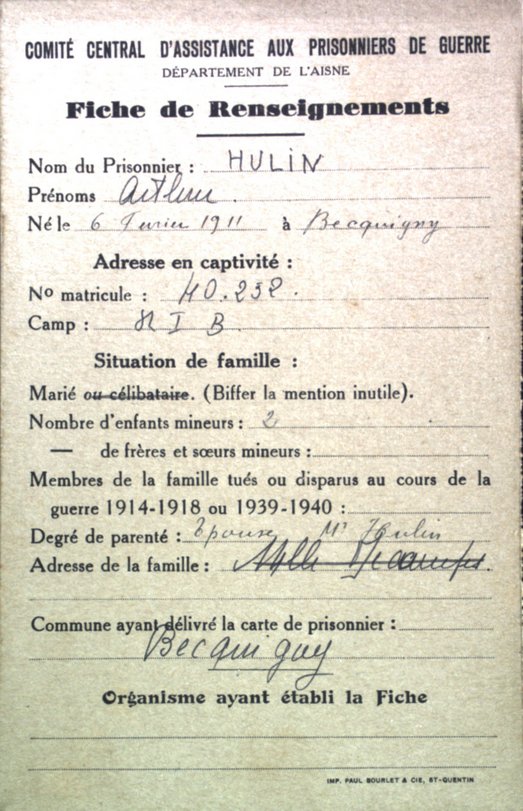 COMITÉ CENTRAL D'ASSISTANCE AUX PRISONNIERS DE GUERRE
DÉPARTEMENT DE L'AISNE
Fiche de Renseignements
Nom du Prisonnier : HULIN
Prénoms Arthur
Né le 6 Fevrier 1911 à Becquigny
Adresse en captivité :
No matricule : 40.232.
Camp : I B
Situation de famille :
Marié ou célibataire. (Biffer la mention inutile).
Nombre d'enfants mineurs : 2
— de frères et sœurs mineurs :
Membres de la famille tués ou disparus au cours de la
guerre 1914-1918 ou 1939-1940 :
Degré de parenté : Epouse Hulin
Adresse de la famille :
Commune ayant délivré la carte de prisonnier :
Becquigny
Organisme ayant établi la Fiche
IMP. PAUL BOURLET & CIE, ST-QUENTIN